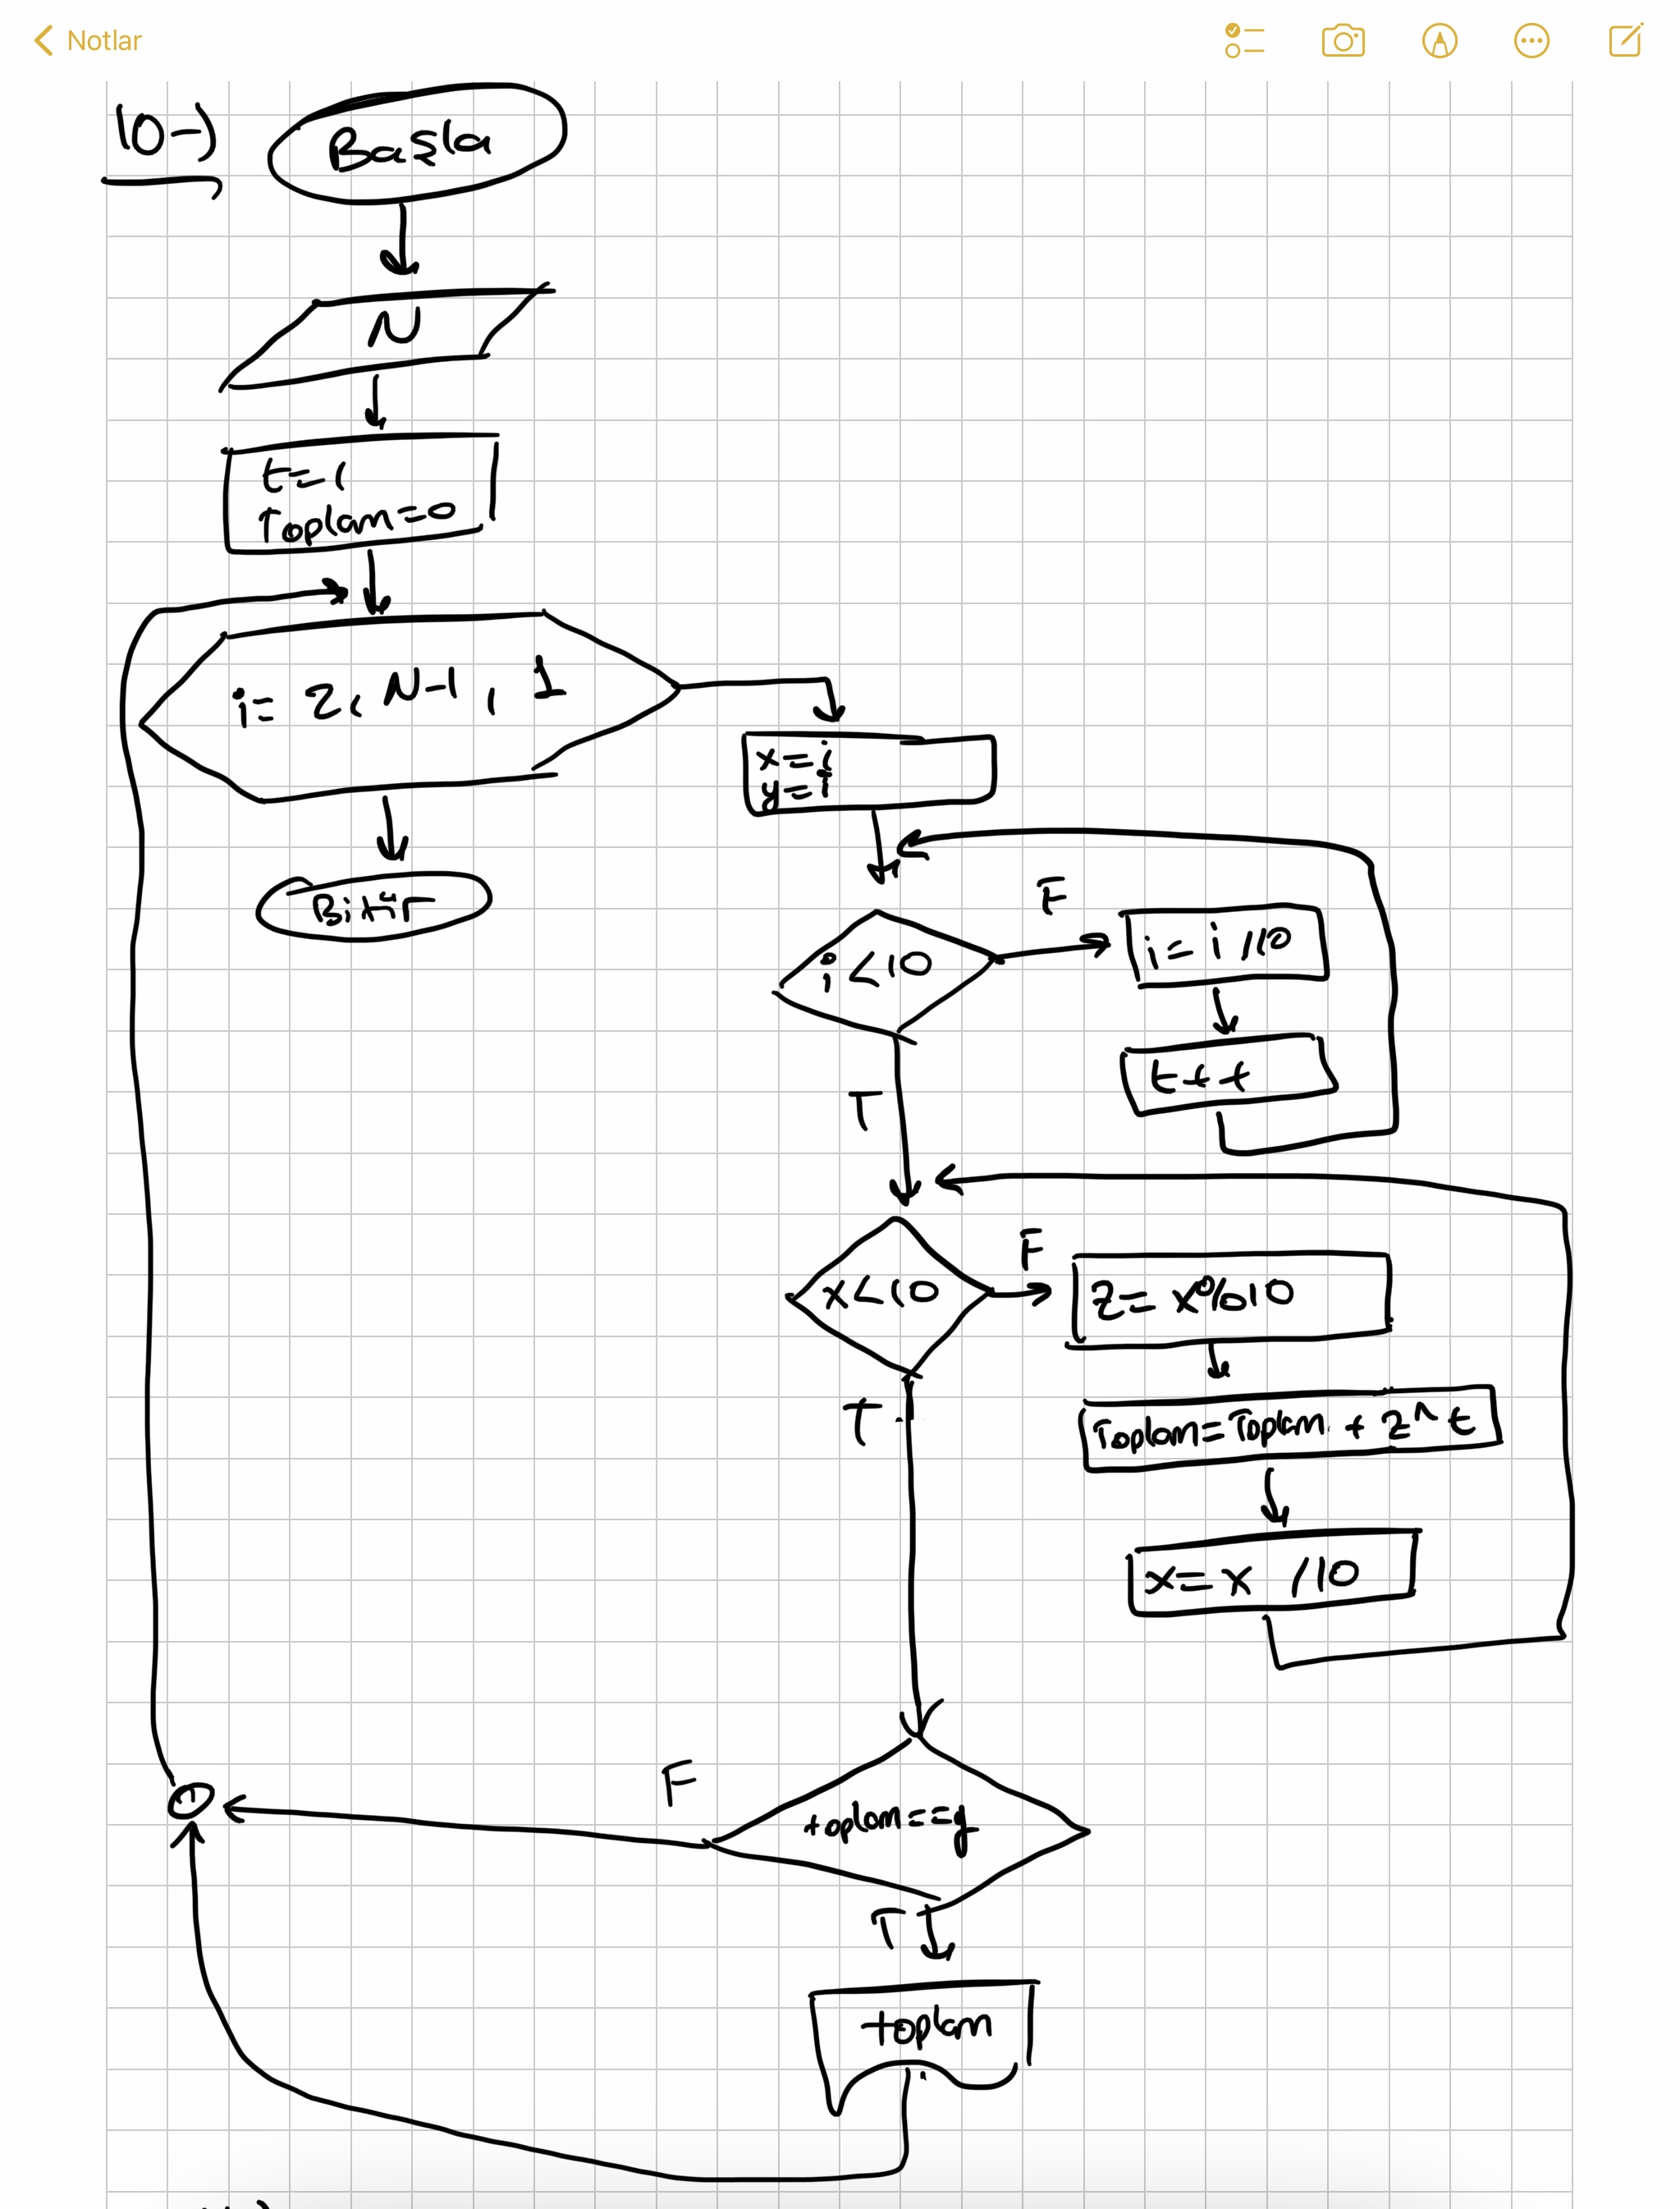 Notlar
10-)
Başla
N
t=1
Toplam=0
i= 2, N-1, 1
x=i
y=i
Bitir
F
i<10
i= i /10
t++
T
F
x<10
z= x%10
T
Toplam=Toplam + z^t
x=x /10
F
toplam==y
T
toplam